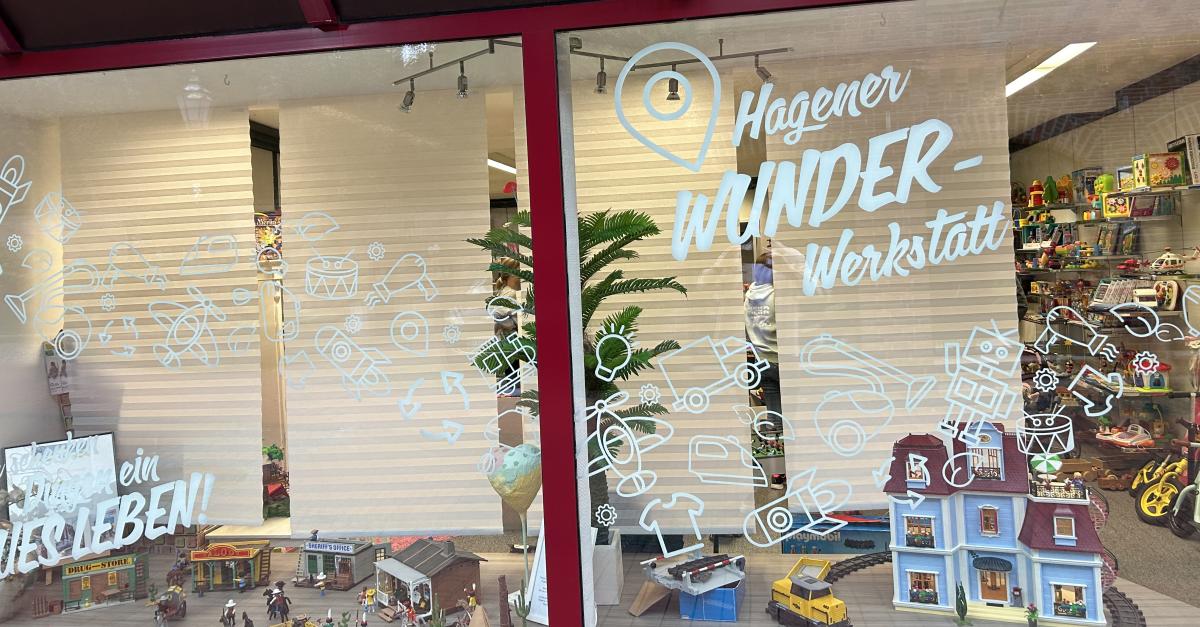 Hagener
WUNDER-
Werkstatt
ein
UES LEBEN!
DRUG-STORE
SHERIFF'S OFFICE
playmobil